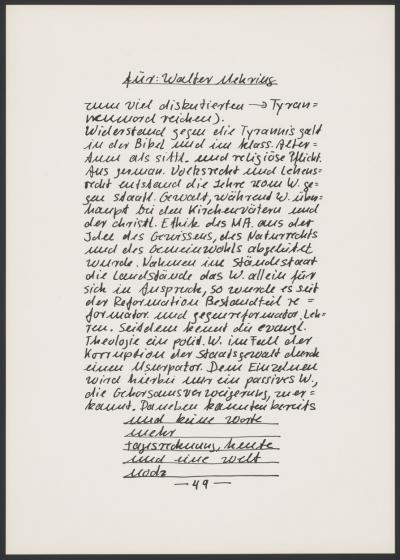 für: Walter Mehring
zum viel diskutierten → Tyran=
nenmord reichen).
Widerstand gegen die Tyrannis galt
in der Bibel und im klass. Alter=
tum als sittl. und religiöse Pflicht.
Aus german. Volksrecht und Lehens=
recht entstand die Lehre vom W. ge=
gen staatl. Gewalt, während W. über=
haupt bei den Kirchenvätern und
der christl. Ethik des MA. aus der
Idee des Gewissens, des Naturrechts
und des Gemeinwohls abgeleitet
wurde. Nahmen im Ständestaat
die Landstände das W. allein für
sich in Anspruch, so wurde es seit
der Reformation Bestandteil re=
formator. und gegenreformator. Leh=
ren. Seitdem kennt die evangl.
Theologie ein polit. W. im Fall der
Korruption der Staatsgewalt durch
einen Usurpator. Dem Einzelnen
wird hierbei nur ein passives W.,
die Gehorsamsverweigerung, zuer=
kannt. Daneben kannten bereits
und keine worte
mehr
tagesrechnung, heute
und eine welt
noch
— 49 —